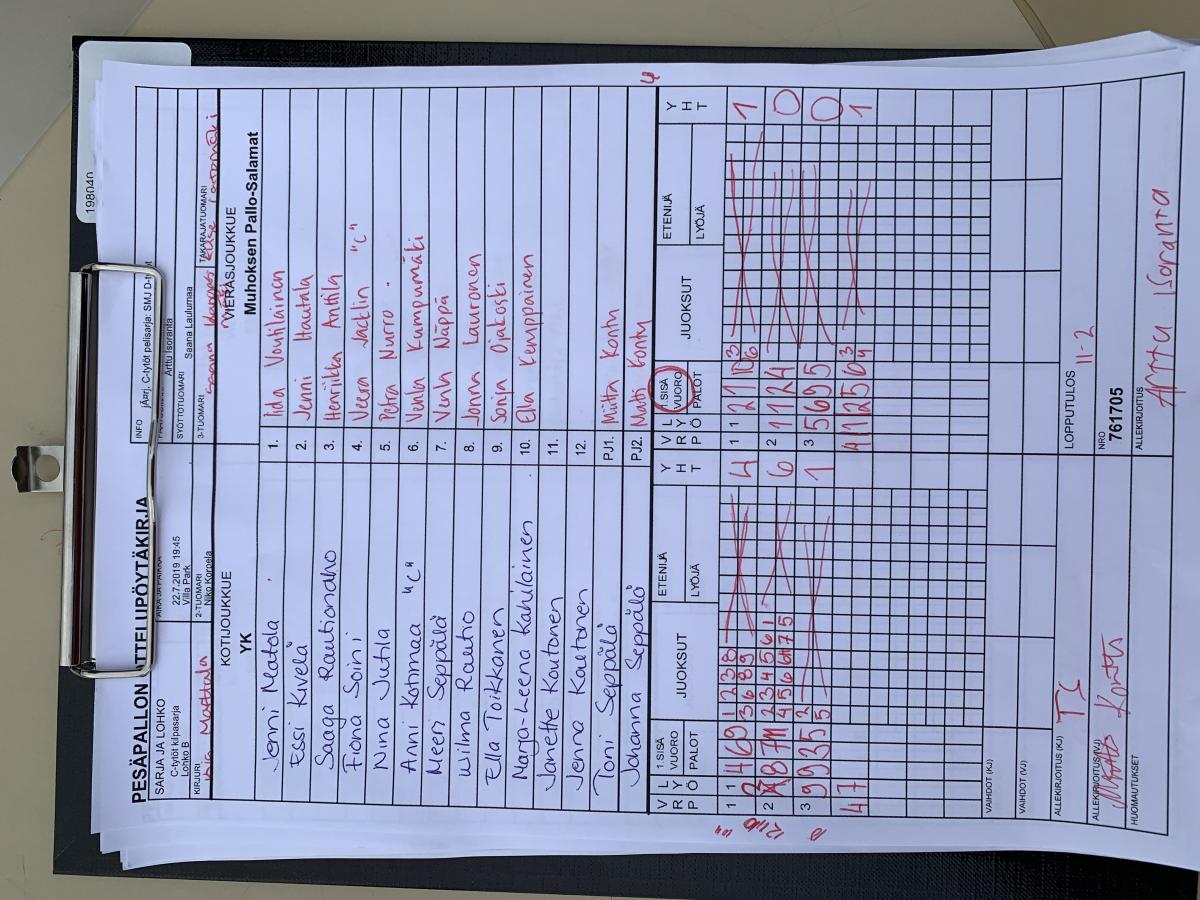 198040
PESÄPALLON OTTELUPÖYTÄKIRJA
INFO
jÄrj. C-tytöt pelisarja: SMJ D-tytöt
SARJA JA LOHKO
C-tytöt kilpasarja
Lohko B
AIKA JA PAIKKA
22.7.2019 19:45
Villa Park
Arttu Isoranta
SYÖTTÖTUOMARI
Saana Laulumaa
KIRJURI
Mattala
2-TUOMARI
Niko Korpela
3-TUOMARI
TAKARAJATUOMARI
KOTIJOUKKUE
YK
VIERASJOUKKUE
Muhoksen Pallo-Salamat
Jenni Matola 1. Iida Voutilainen
Essi Kivelä 2. Jenni Hautala
Saaga Rautionaho 3. Henriikka Anttila
Fiona Soini 4. Veera Jacklin "C"
Nina Jutila 5. Petra Nurro
Anni Kotimaa "C" 6. Venla Kumpumäki
Meeri Seppälä 7. Venla Näppä
Wilma Rautio 8. Jonna Lauronen
Ella Toikkanen 9. Sonja Ojakoski
Marja-Leena Kahilainen 10. Ella Kemppainen
Janette Kautonen 11.
Jenna Kautonen 12.
Toni Seppälä PJ1. Miitta Kontu
Johanna Seppälä PJ2. Matti Kontu
V R Ö L Y P 1.SISÄ VUORO PALOT JUOKSUT ETENIJÄ LYÖJÄ Y H T V R Ö L Y P 1.SISÄ VUORO PALOT JUOKSUT ETENIJÄ LYÖJÄ Y H T
1 1 4 6 9 1 2 3 8 4 1 1 2 7 10 3 1
3 6 8 9 6
2 8 7 11 2 3 4 5 6 1 6 2 1 1 2 4 0
4 5 6 6 7 5
3 9 9 3 5 2 1 3 5 6 9 5 0
5
4 7 4 11 2 5 0 3 1
4
VAIHDOT (KJ)
VAIHDOT (VJ)
ALLEKIRJOITUS (KJ) TS LOPPUTULOS 11-2
ALLEKIRJOITUS(VJ) Kontu NRO
761705
HUOMAUTUKSET ALLEKIRJOITUS Arttu Isoranta